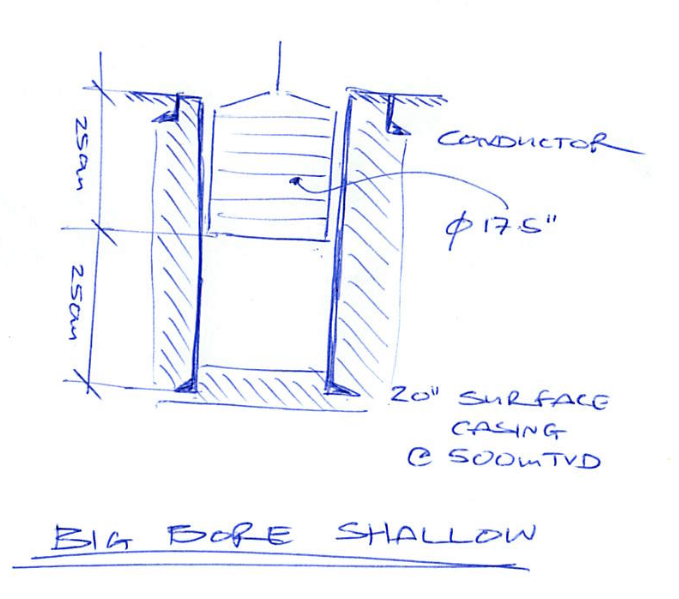 250m
250m
CONDUCTOR
ϕ 17.5"
20" SURFACE
CASING
@ 500mTVD
BIG BORE SHALLOW